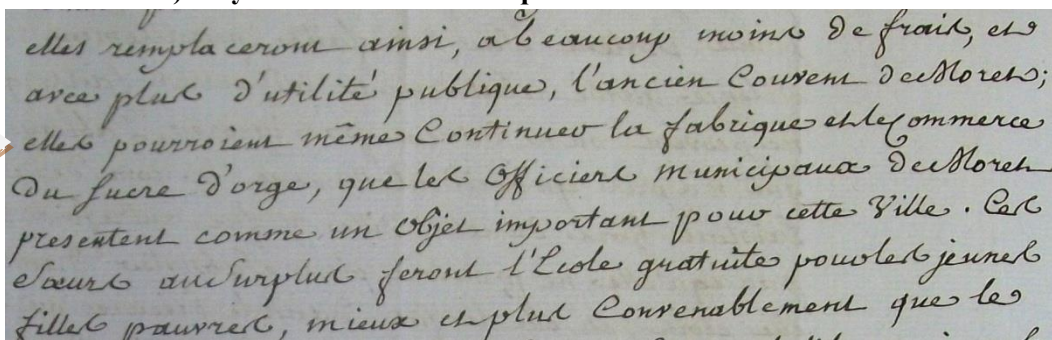 elles remplaceront ainsi, a beaucoup moins de frais, et
avec plus d'utilité publique, l'ancien Couvent de Moret;
elles pourroient même Continuer la fabrique et le Commerce
du sucre d'orge, que les Officiers municipaux de Moret
presentent comme un objet important pour cette Ville. Ces
Sœurs au Surplus feront l'Ecole gratuite pour les jeunes
filles pauvres, mieux et plus Convenablement que le